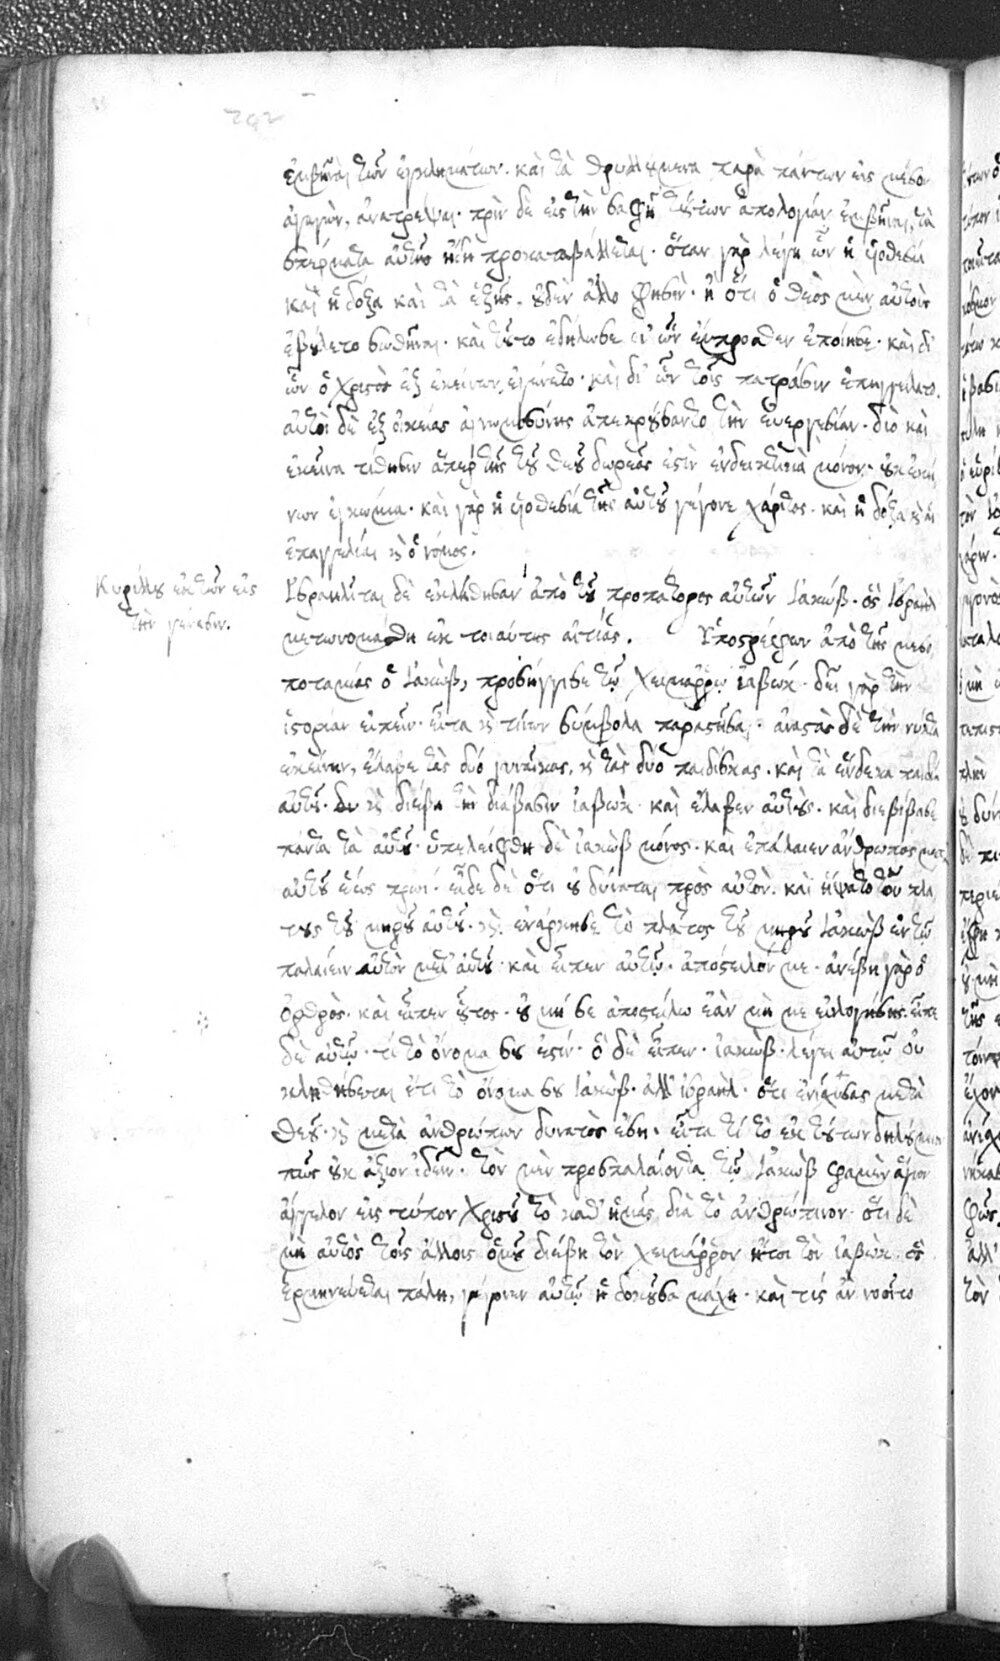 ἐκβῆναι τῶν ἐγκλημάτων. καὶ τὰ θρυλλούμενα παρὰ πάντων εἰς μέσον
ἀγαγὼν, ἀνατρέψαι. πρὶν δὲ εἰς τὴν σαφῆ τούτων ἀπολογίαν ἐκβῆναι, τὰ
σπέρματα αὐτῆς ἤδη προκαταβάλλεται. ὅταν γὰρ λέγη ὧν ἡ υἱοθεσία
καὶ ἡ δόξα καὶ τὰ ἑξῆς. οὐδὲν ἄλλο φησὶν. ἢ ὅτι ὁ θεὸς μὲν αὐτοὺς
ἐβούλετο σωθῆναι. καὶ τοῦτο ἐδήλωσε δι' ὧν ἔμπροσθεν ἐποίησε. καὶ δι'
ὧν ὁ Χριστὸς ἐξ ἐκείνων ἐγένετο. καὶ δι' ὧν τοῖς πατράσιν ἐπηγγείλατο.
αὐτοὶ δὲ ἐξ οἰκείας ἀγνωμοσύνης ἀπεκρούσαντο τὴν εὐεργεσίαν. διὸ καὶ
ἐκεῖνα τίθησιν ἅπερ τῆς τοῦ θεοῦ δωρεᾶς ἐστὶν ἐνδεικτικὰ μόνον. οὐκ ἐκεί
νων ἐγκώμια. καὶ γὰρ ἡ υἱοθεσία τῆς αὐτοῦ γέγονε χάριτος. καὶ ἡ δόξα κ αἱ
ἐπαγγελίαι κ ὁ νόμος.
Κυρίλλου ἐκ τῶν εἰς
τὴν γένεσιν.
Ἰσραηλῖται δὲ ἐκλήθησαν ἀπὸ τοῦ προπάτορος αὐτῶν Ἰακώβ. ὃς Ἰσραὴλ
μετωνομάσθη ἐκ τοιαύτης αἰτίας. Ὑποστρέφων ἀπὸ τῆς μεσο
ποταμίας ὁ Ἰακὼβ, προσήγγισε τῷ χειμάρρῳ ἰαβώχ. δεῖ γὰρ τὴν
ἱστορίαν εἰπεῖν. εἶτα κ τίνων σύμβολα παραστῆσαι. ἀναστὰς δὲ τὴν νύκτα
ἐκείνην, ἔλαβε τὰς δύο γυναῖκας, κ τὰς δύο παιδίσκας. καὶ τὰ ἕνδεκα παιδία
αὐτοῦ. κ διέβη τὴν διάβασιν ἰαβὼχ. καὶ ἔλαβεν αὐτοὺς. καὶ διεβίβασε
πάντα τὰ αὐτοῦ. ὑπελείφθη δὲ ἰακὼβ μόνος. καὶ ἐπάλαιεν ἄνθρωπος μετ'
αὐτοῦ ἕως πρωῒ. εἶδε δὲ ὅτι οὐ δύναται πρὸς αὐτὸν. καὶ ἥψατο τοῦ πλά
τους τοῦ μηροῦ αὐτοῦ. κ ἐνάρκησε τὸ πλάτος τοῦ μηροῦ Ἰακὼβ ἐν τῷ
παλαίειν αὐτὸν μετ' αὐτοῦ. καὶ εἶπεν αὐτῷ. ἀπόστειλόν με. ἀνέβη γὰρ ὁ
ὄρθρος. καὶ εἶπεν οὗτος. οὐ μή σε ἀποστείλω ἐὰν μή με εὐλογήσης. εἶπε
δὲ αὐτῷ. τί τὸ ὄνομα σου ἐστίν. ὁ δὲ εἶπεν. ἰακὼβ. λέγει αὐτῷ οὐ
κληθήσεται ἔτι τὸ ὄνομα σου Ἰακὼβ. ἀλλ' ἰσραὴλ. ὅτι ἐνίσχυσας μετὰ
θεοῦ. κ μετὰ ἀνθρώπων δυνατὸς ἔση. εἶτα τί τὸ ἐκ τούτων δηλούμενον
πῶς οὐκ ἄξιον ἰδεῖν. τὸν μὲν προσπαλαίοντα τῷ Ἰακὼβ φαμὲν ἅγιον
ἄγγελον εἰς τύπον Χριστοῦ τὸ καθ' ἡμᾶς διὰ τὸ ἀνθρώπινον. ὅτι δὲ
μὴ αὐτὸς τοῖς ἄλλοις ὁμοῦ διέβη τὸν χειμάρρον ἤτοι τὸν ἰαβώχ. ὃς
ἑρμηνεύεται πάλη, γέγονεν αὐτῷ ἡ δοκοῦσα μάχη. καὶ τίς ἂν νοοῖτο